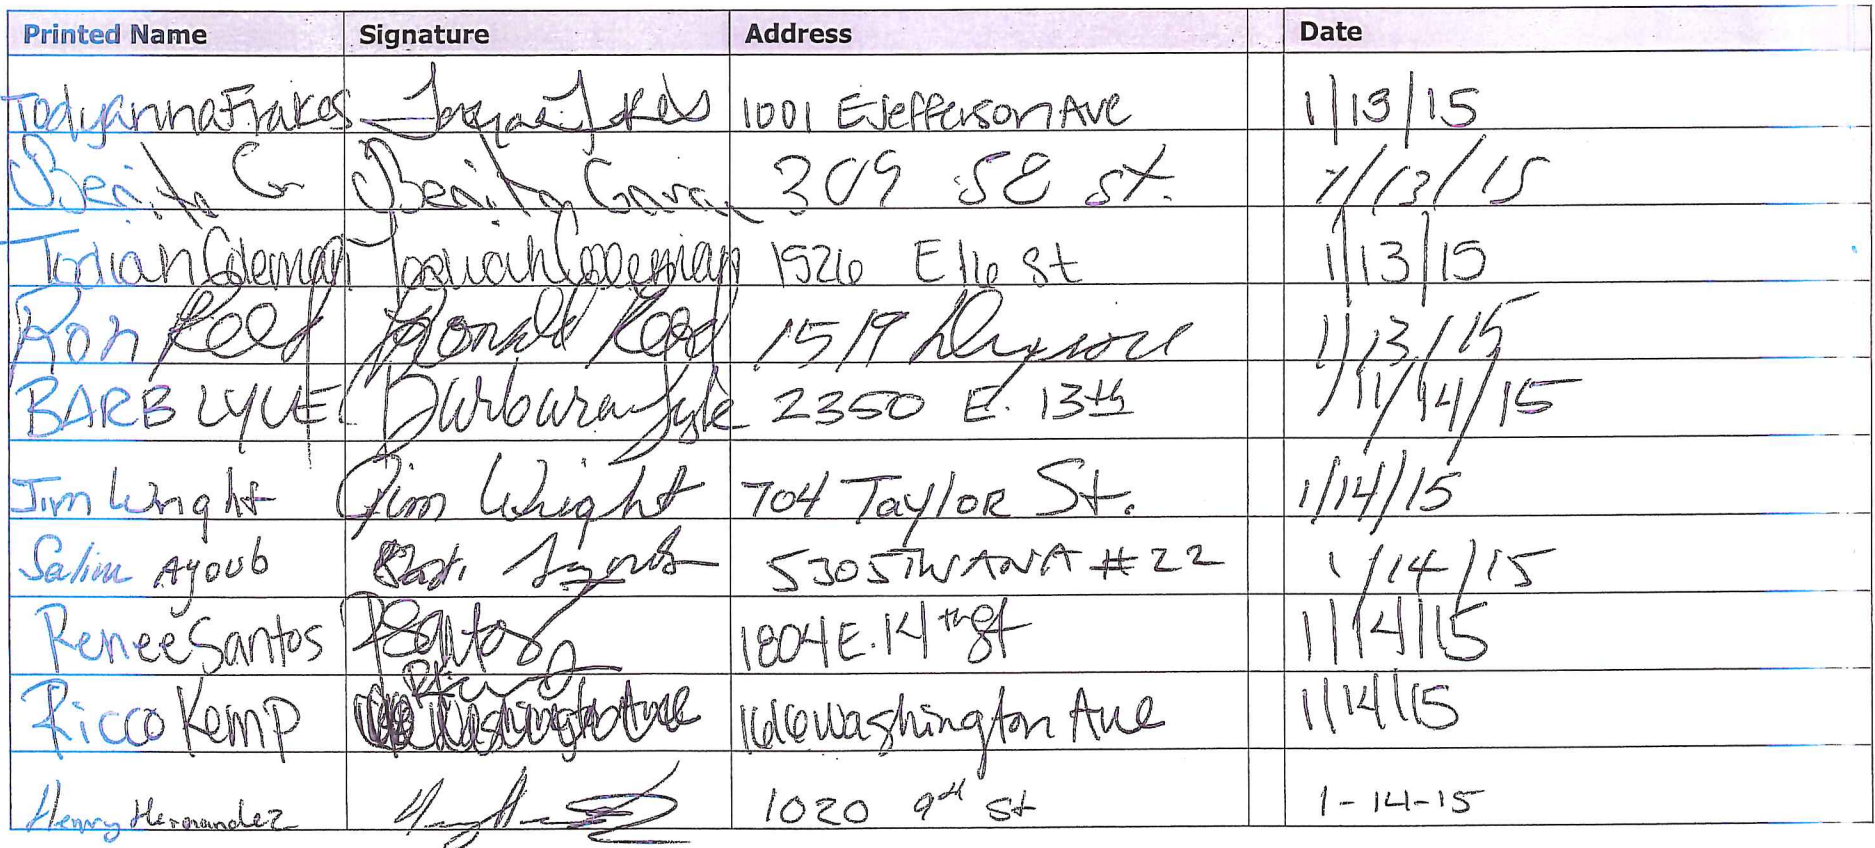 Printed Name Signature Address Date
Todyanna Frakes 1001 E Jefferson Ave 1/13/15
Benito G Benito 309 58 st. 1/13/15
Jodian Coleman Coleman 1526 E 16 St 1/13/15
Ron Reed Ronald Reed 1519 1/13/15
BARB LYLE Barbara Lyle 2350 E. 13th 1/14/15
Jim Wright Jim Wright 704 Taylor St. 1/14/15
Salim Ayoub Ayoub 5305 TWANA #22 1/14/15
Renee Santos RSantos 1804 E. 14th St 1/14/15
Ricco Kemp Washington Ave 1616 Washington Ave 1/14/15
Henry Hernandez 1020 9th St 1-14-15